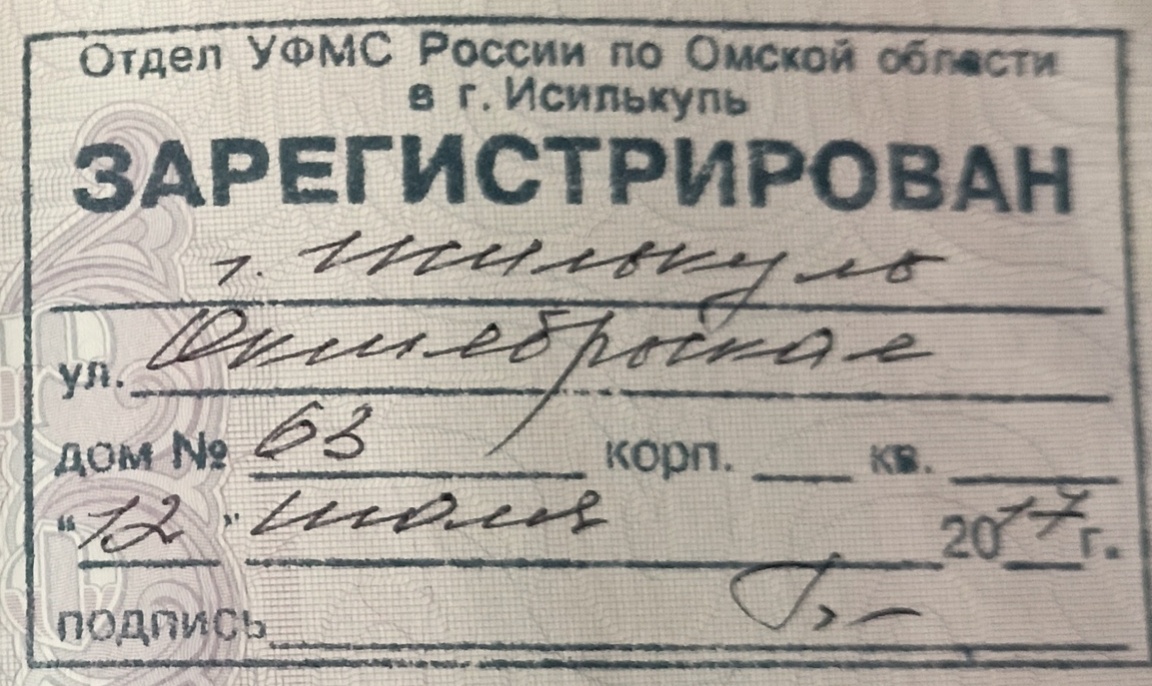 Отдел УФМС России по Омской области
в г. Исилькуль
ЗАРЕГИСТРИРОВАН
г. Исилькуль
ул. Октябрьская
дом № 63 корп. кв.
"12" июля 2017 г.
подпись